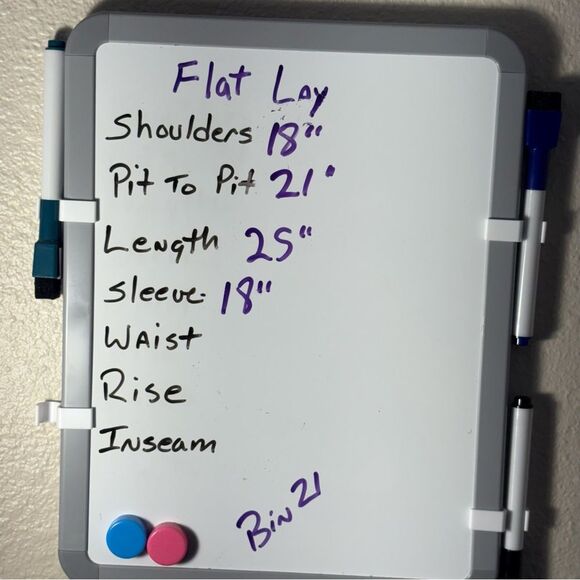 Flat Lay
Shoulders 18"
Pit To Pit 21"
Length 25"
Sleeve 18"
Waist
Rise
Inseam
Bin 21